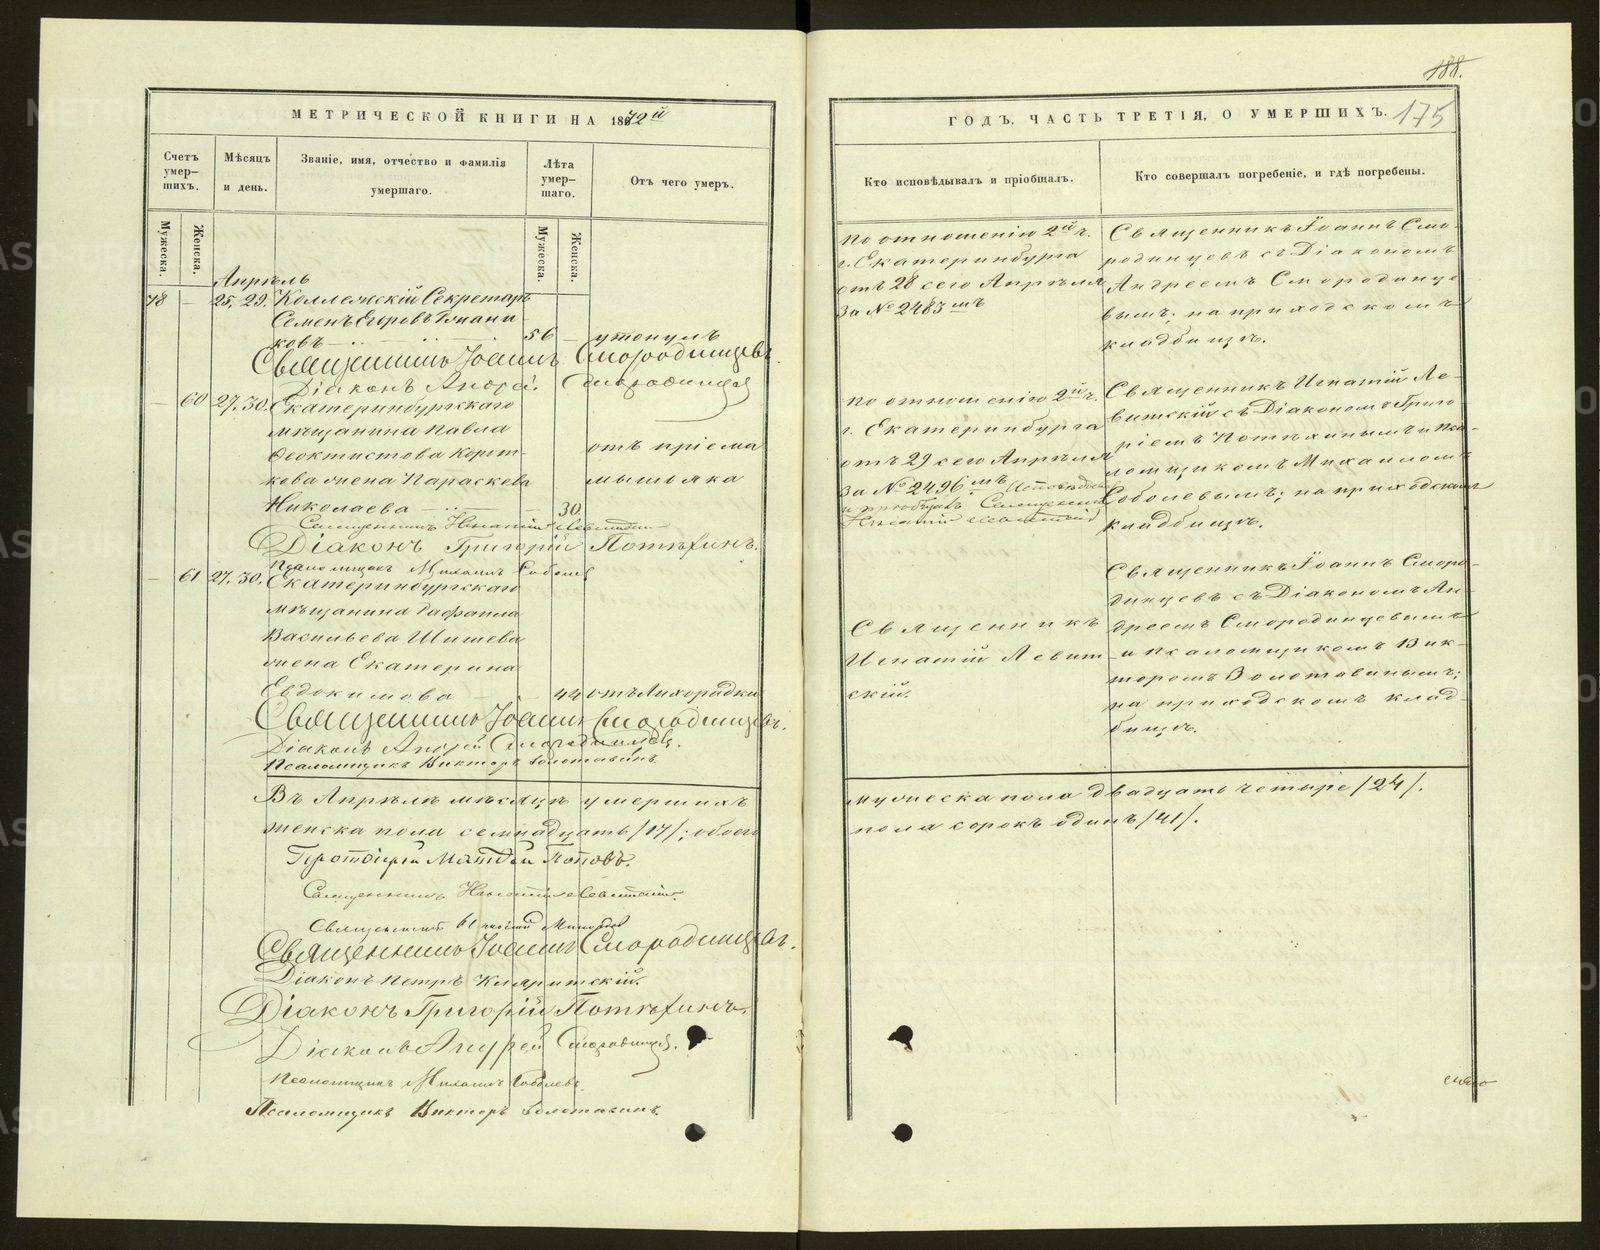 188.
МЕТРИЧЕСКОЙ КНИГИ НА 1872й
ГОДЪ, ЧАСТЬ ТРЕТІЯ, О УМЕРШИХЪ.
175
Счетъ умер-
шихъ.
Мѣсяцъ
и день.
Званіе, имя, отчество и фамилія
умершаго.
Лѣта
умер-
шаго.
Отъ чего умеръ.
Кто исповѣдывалъ и пріобщалъ.
Кто совершалъ погребеніе, и гдѣ погребены.
Мужеска.
Женска.
Мужеска.
Женска.
Апрѣль
78 — 25, 29. Коллежскій Секретарь
Семенъ Егоровъ
ковъ — 56 — утонулъ
по отношенію 2й ч.
г. Екатеринбурга
отъ 28 сего Апрѣля
За № 2483мъ
Священникъ Іоаннъ Смо-
родинцевъ съ Діакономъ
Андреемъ Смородинце
вымъ; на приходскомъ
кладбищѣ.
Священникъ Іоаннъ Смородинцевъ
Діаконъ Андрей Смородинцевъ
— 60 27, 30. Екатеринбургскаго
мѣщанина Павла
Феоктистова Корот-
кова жена Параскева
Николаева — 30.
отъ пріема
мышьяка
по отношенію 2й ч.
г. Екатеринбурга
отъ 29 сего Апрѣля
За № 2496мъ Исповѣдывалъ
и пріобщалъ Священникъ
Игнатій Левитскій
Священникъ Игнатій Ле-
витскій съ Діакономъ Григо-
ріемъ Потѣхинымъ и Пса-
ломщикомъ Михаиломъ
Соболевымъ; на приходскомъ
кладбищѣ.
Священникъ Игнатій Левитскій
Діаконъ Григорій Потѣхинъ.
Псаломщикъ Михаилъ Соболевъ
— 61 27, 30. Екатеринбургскаго
мѣщанина Рафаила
Васильева Шишева
жена Екатерина
Евдокимова — 44 отъ Лихорадки
Священникъ
Игнатій Левит
скій.
Священникъ Іоаннъ Сморо-
динцевъ съ Діакономъ Ан-
дреемъ Смородинцевымъ
и Псаломщикомъ Вик-
торомъ Золотавинымъ;
на приходскомъ клад
бищѣ.
Священникъ Іоаннъ Смородинцевъ.
Діаконъ Андрей Смородинцевъ.
Псаломщикъ Викторъ Золотавинъ
Въ Апрѣлѣ мѣсяцѣ умершихъ
мужеска пола двадцать четыре /24/.
женска пола семнадцать /17/; обоего
пола сорокъ одинъ /41/.
Протоіерей Матѳей Поповъ.
Священникъ Игнатій Левитскій.
Священникъ
Священникъ Іоаннъ Смородинцевъ.
Діаконъ Петръ Кляритскій.
Діаконъ Григорій Потѣхинъ.
Діаконъ Андрей Смородинцевъ.
Псаломщикъ Михаилъ Соболевъ.
Псаломщикъ Викторъ Золотавинъ.